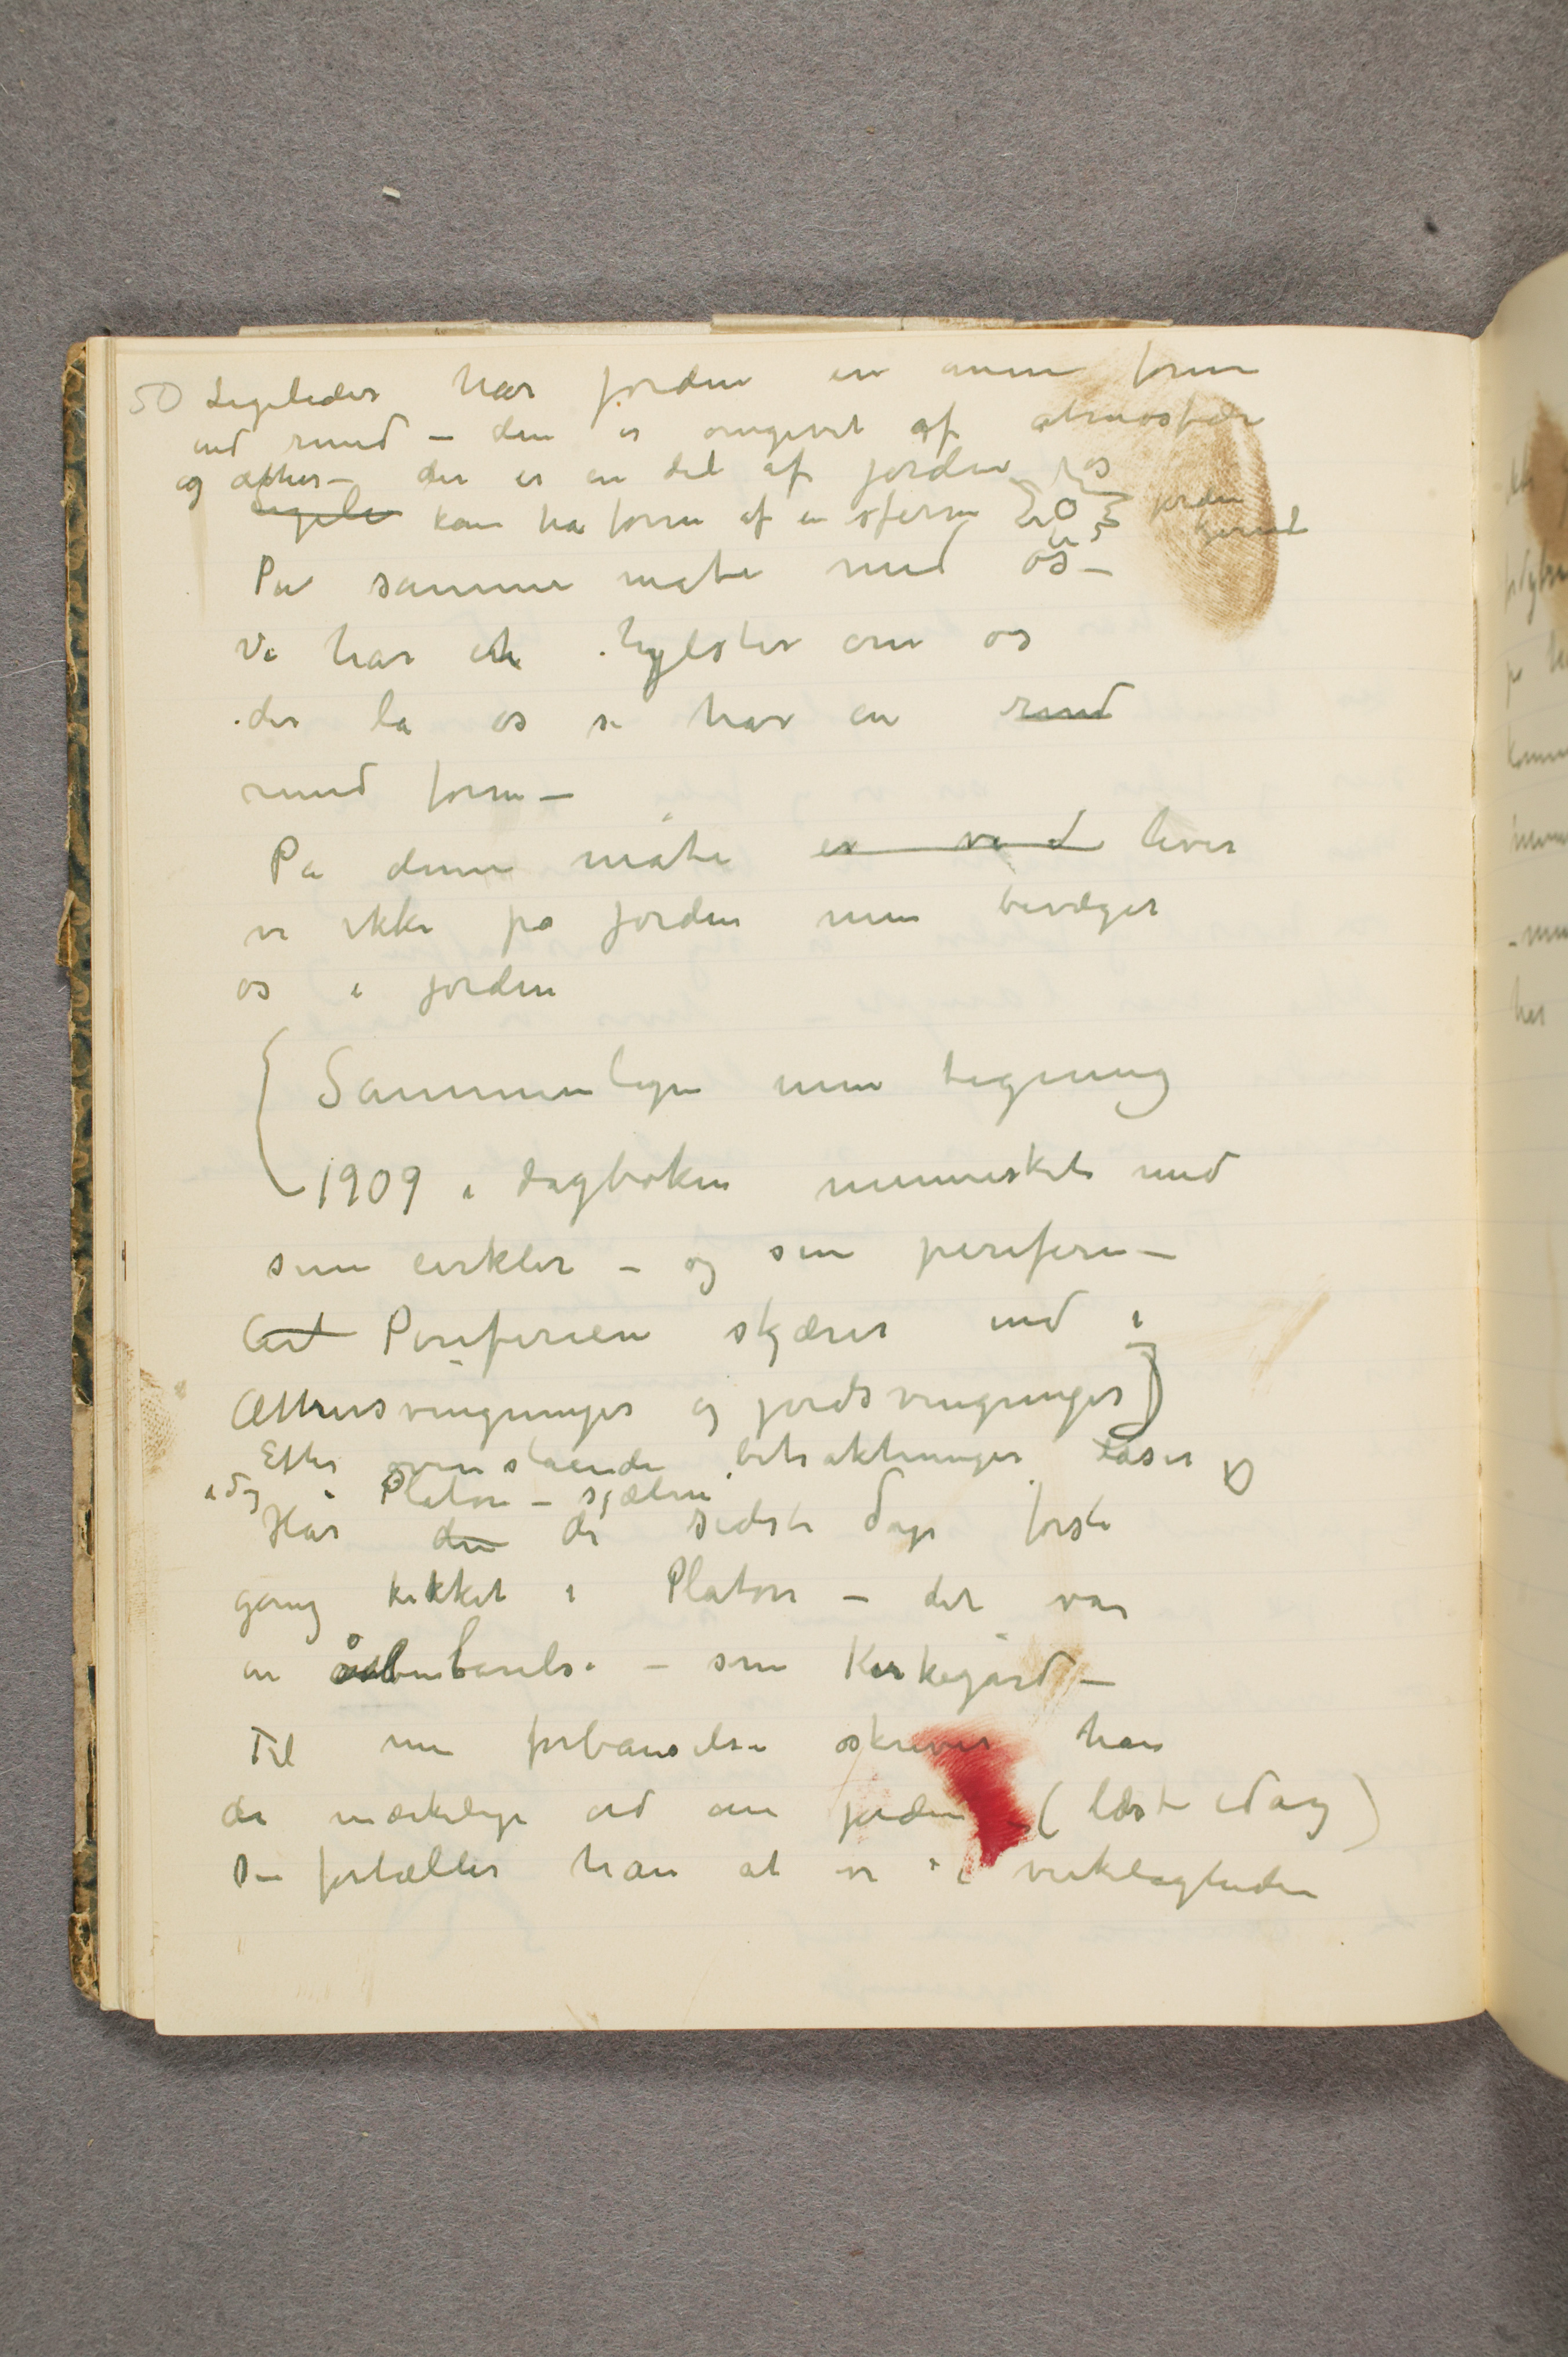 50 Ligeledes har jorden en annen form
end rund – den er omgivet af atmosfær
og æther – der er en del af jorden
Ligele kan ha form af en sferm jorden
På samme måte med os –
Vi har et hylster om os
der la os si har en rund
rund form –
På denne måte er vi d lever
vi ikke på jorden men bevæger
os i jorden
(Sammenlign min tegning
1909 i dagboken mennesket med
sine cirkler – og sin periferi –
Peri­ferien skjærer ind i
Æthersvingninger og jordsvingninger)
Efter ovenstående betraktninger læser jeg
idag i Platon – sjælen
Har den de sidste dage første
gang kikket i Platon – det var
en åbenbarelse – som Kirkegård –
Til min forbauselse skriver han
de mærkelige ord om jorden (læst idag)
Da fortæller han at vi i virkeligheden